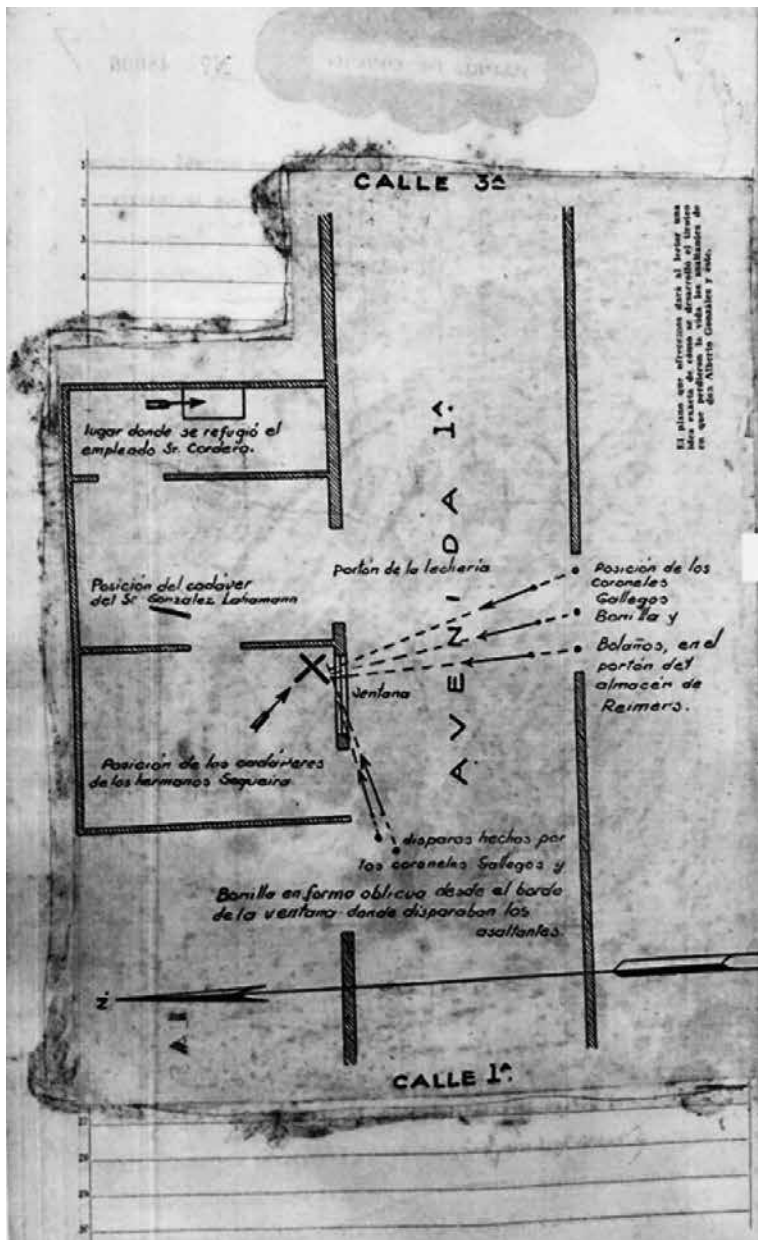 Nº
CALLE 3ª
1
2
3
4
El plano que ofrecemos dará al lector una
idea exacta de cómo se desarrolló el tiroteo
en que perdieron la vida los asaltantes de
don Alberto González y éste.
lugar donde se refugió el
empleado Sr. Cordero.
AVENIDA 1ª.
portón de la lechería
Posición de los
coroneles
Gallegos
Bonilla y
Bolaños, en el
portón del
almacén de
Reimers.
Posición del cadáver
del Sr. González Lahmann
ventana
Posición de los cadáveres
de los hermanos Sequeira
disparos hechos por
los coroneles Gallegos y
Bonilla en forma oblicua desde el borde
de la ventana donde disparaban los
asaltantes.
N.
CALLE 1ª.